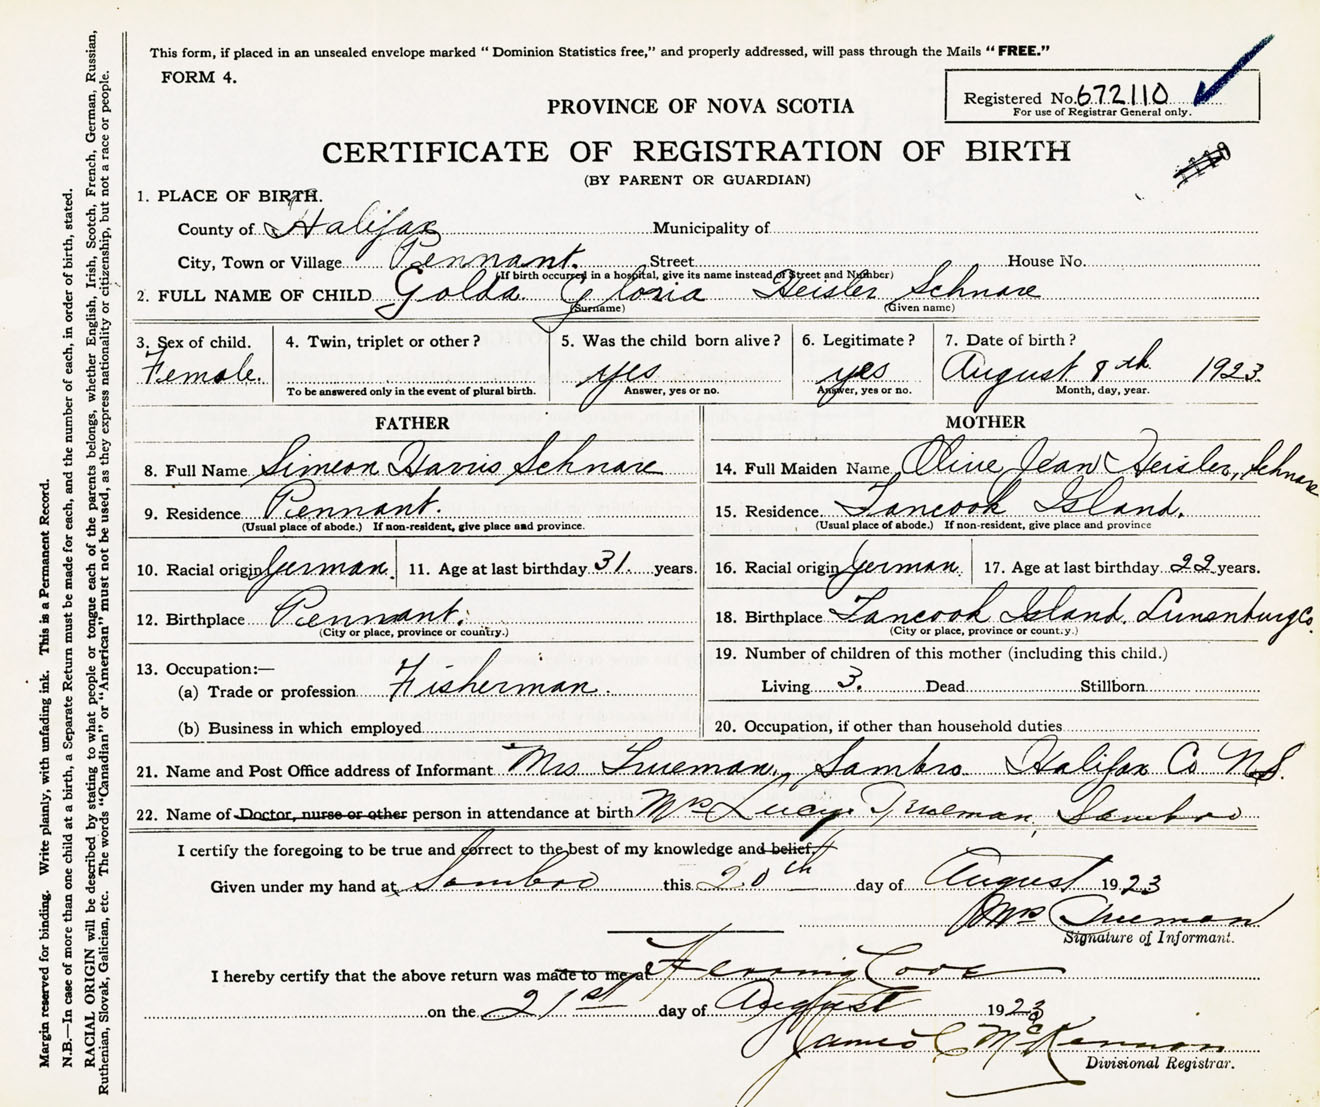 This form, if placed in an unsealed envelope marked “Dominion Statistics free,” and properly addressed, will pass through the Mails “FREE.”
FORM 4.
Registered No. 672110
For use of Registrar General only.
PROVINCE OF NOVA SCOTIA
CERTIFICATE OF REGISTRATION OF BIRTH
(BY PARENT OR GUARDIAN)
1. PLACE OF BIRTH.
County of Halifax Municipality of
City, Town or Village Pennant. Street House No.
(If birth occurred in a hospital, give its name instead of Street and Number)
2. FULL NAME OF CHILD Golda Gloria Heisler Schnare
(Surname) (Given name)
3. Sex of child. Female.
4. Twin, triplet or other?
To be answered only in the event of plural birth.
5. Was the child born alive? yes
Answer, yes or no.
6. Legitimate? yes
Answer, yes or no.
7. Date of birth? August 8th 1923.
Month, day, year.
FATHER
8. Full Name Simeon Harris Schnare
9. Residence Pennant.
(Usual place of abode.) If non-resident, give place and province.
10. Racial origin German. 11. Age at last birthday 31 years.
12. Birthplace Pennant.
(City or place, province or country.)
13. Occupation:—
(a) Trade or profession Fisherman.
(b) Business in which employed
MOTHER
14. Full Maiden Name Olive Jean Heisler, Schnare
15. Residence Tancook Island.
(Usual place of abode.) If non-resident, give place and province
16. Racial origin German. 17. Age at last birthday 22 years.
18. Birthplace Tancook Island. Lunenburg Co.
(City or place, province or country.)
19. Number of children of this mother (including this child.)
Living 3. Dead Stillborn
20. Occupation, if other than household duties
21. Name and Post Office address of Informant Mrs Trueman, Sambro Halifax Co N.S.
22. Name of Doctor, nurse or other person in attendance at birth Mrs Lucy Trueman, Sambro
I certify the foregoing to be true and correct to the best of my knowledge and belief.
Given under my hand at Sambro this 20th day of August 1923
Mrs Trueman
Signature of Informant.
I hereby certify that the above return was made to me at Herring Cove
on the 21st day of August 1923
James C McKinnon
Divisional Registrar.
Margin reserved for binding. Write plainly, with unfading ink. This is a Permanent Record.
N.B.—In case of more than one child at a birth, a Separate Return must be made for each, and the number of each, in order of birth, stated.
RACIAL ORIGIN will be described by stating to what people or tongue each of the parents belongs, whether English, Irish, Scotch, French, German, Russian,
Ruthenian, Slovak, Galician, etc. The words “Canadian” or “American” must not be used, as they express nationality or citizenship, but not a race or people.